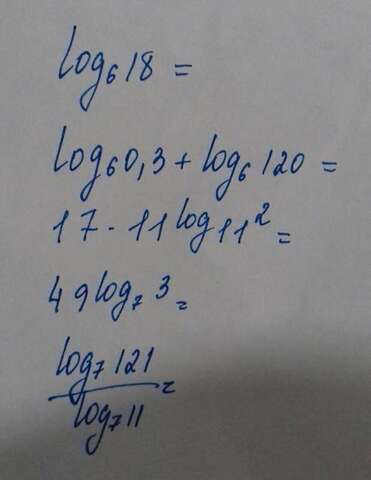 log₆18 =
log₆0,3 + log₆120 =
17 · 11^log₁₁2 =
49^log₇3 =
log₇121 / log₇11 =